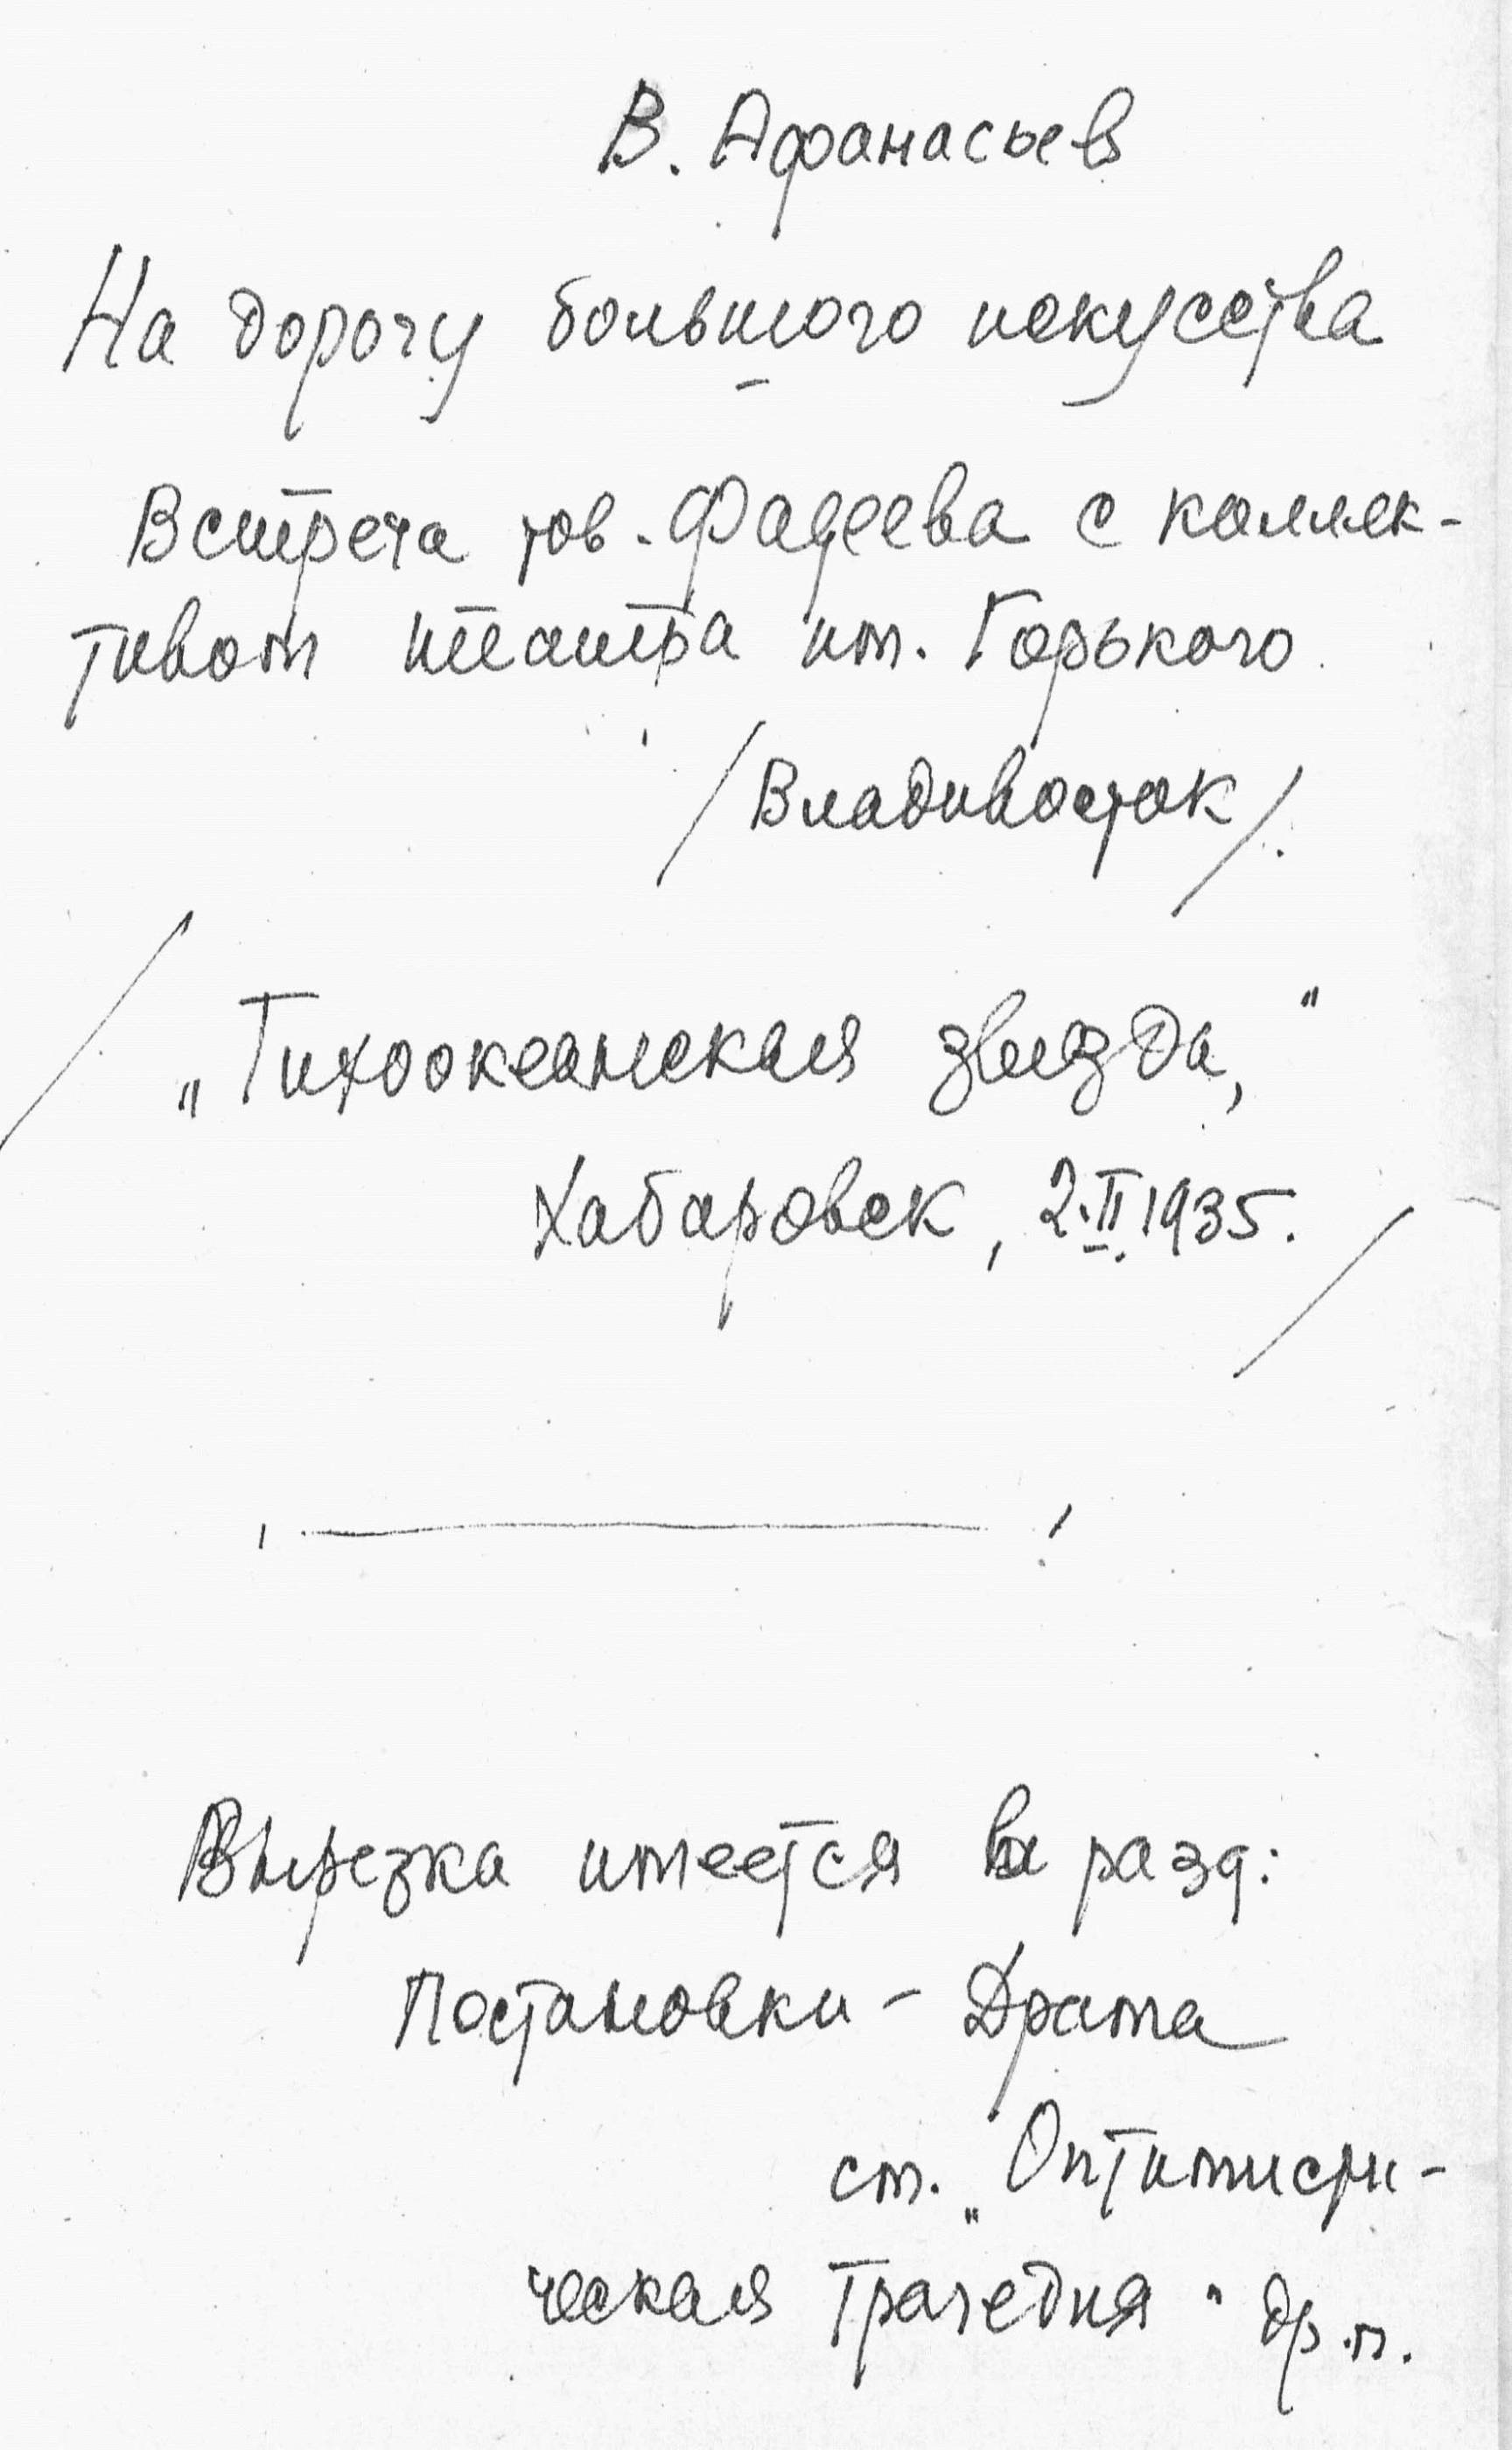 В. Афанасьев
На дорогу большого искусства
Встреча тов. Фадеева с коллек-
тивом театра им. Горького
/Владивосток/.
/ „Тихоокеанская звезда,"
Хабаровск, 2.II.1935. /
Вырезка имеется в разд:
Постановки - Драма
см. „Оптимисти-
ческая трагедия" др.т.